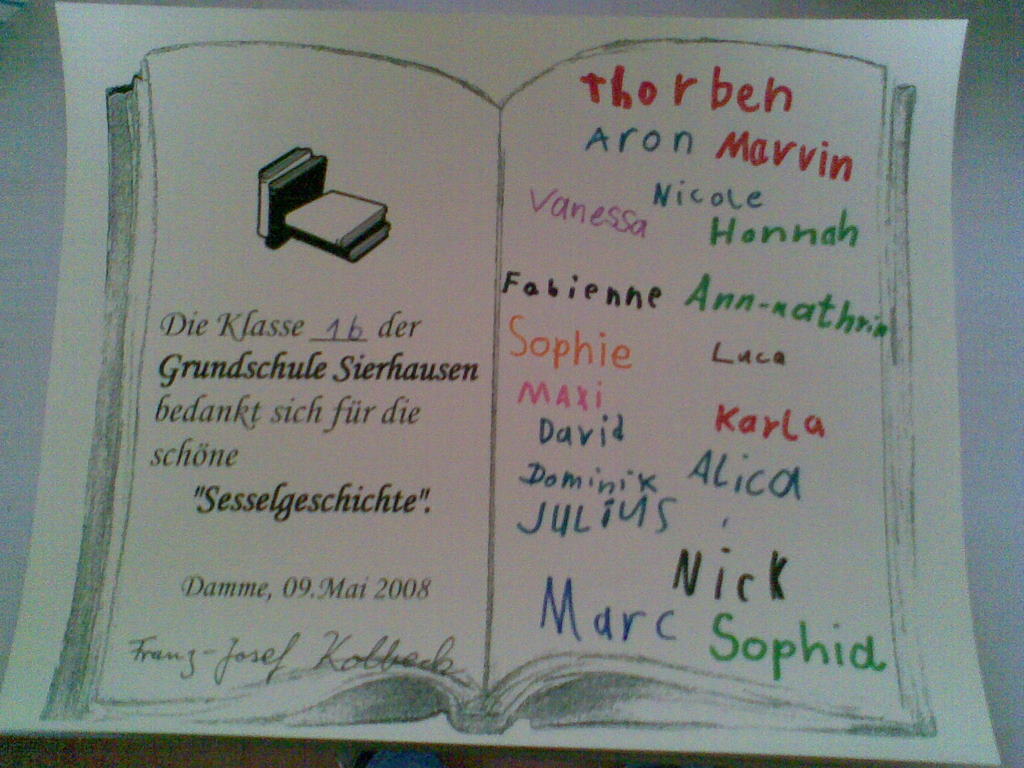 Die Klasse 1b der
Grundschule Sierhausen
bedankt sich für die
schöne
"Sesselgeschichte".
Damme, 09.Mai 2008
Franz-Josef Kolbeck
Thorben
Aron Marvin
Nicole
Vanessa
Honnah
Fabienne Ann-nathrin
Sophie Luca
Maxi
Karla
David
Dominik Alica
JULiUS
Nick
Marc Sophia